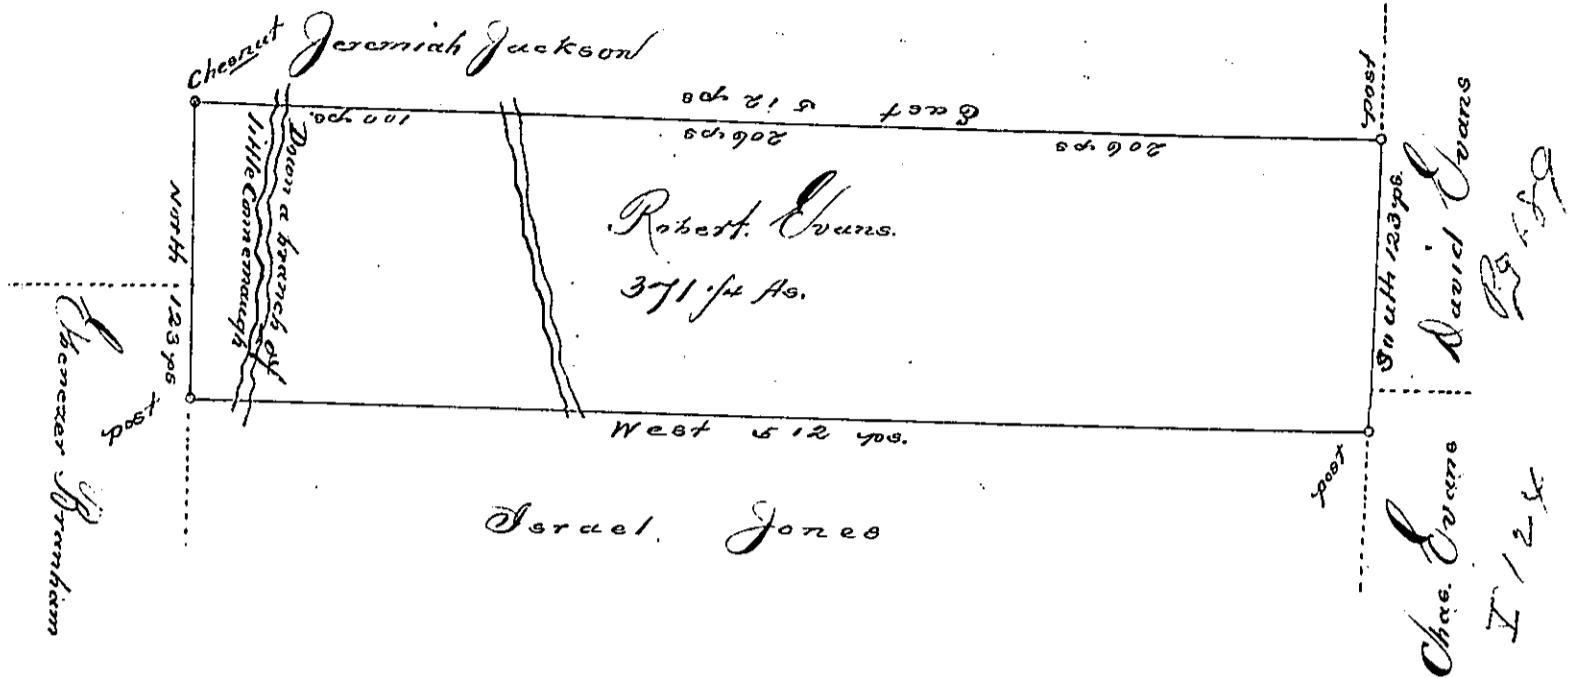 Chesnut
Jeremiah Jackson
East 512 ps
100 ps.
206 ps
206 ps
post
David Evans
South 123 ps.
Robert. Evans.
371 1/4 As.
Down a branch of
little Connemaugh
North 123 ps
Ebenezer Branham
post
West 512 ps.
post
Israel. Jones
Chas. Evans